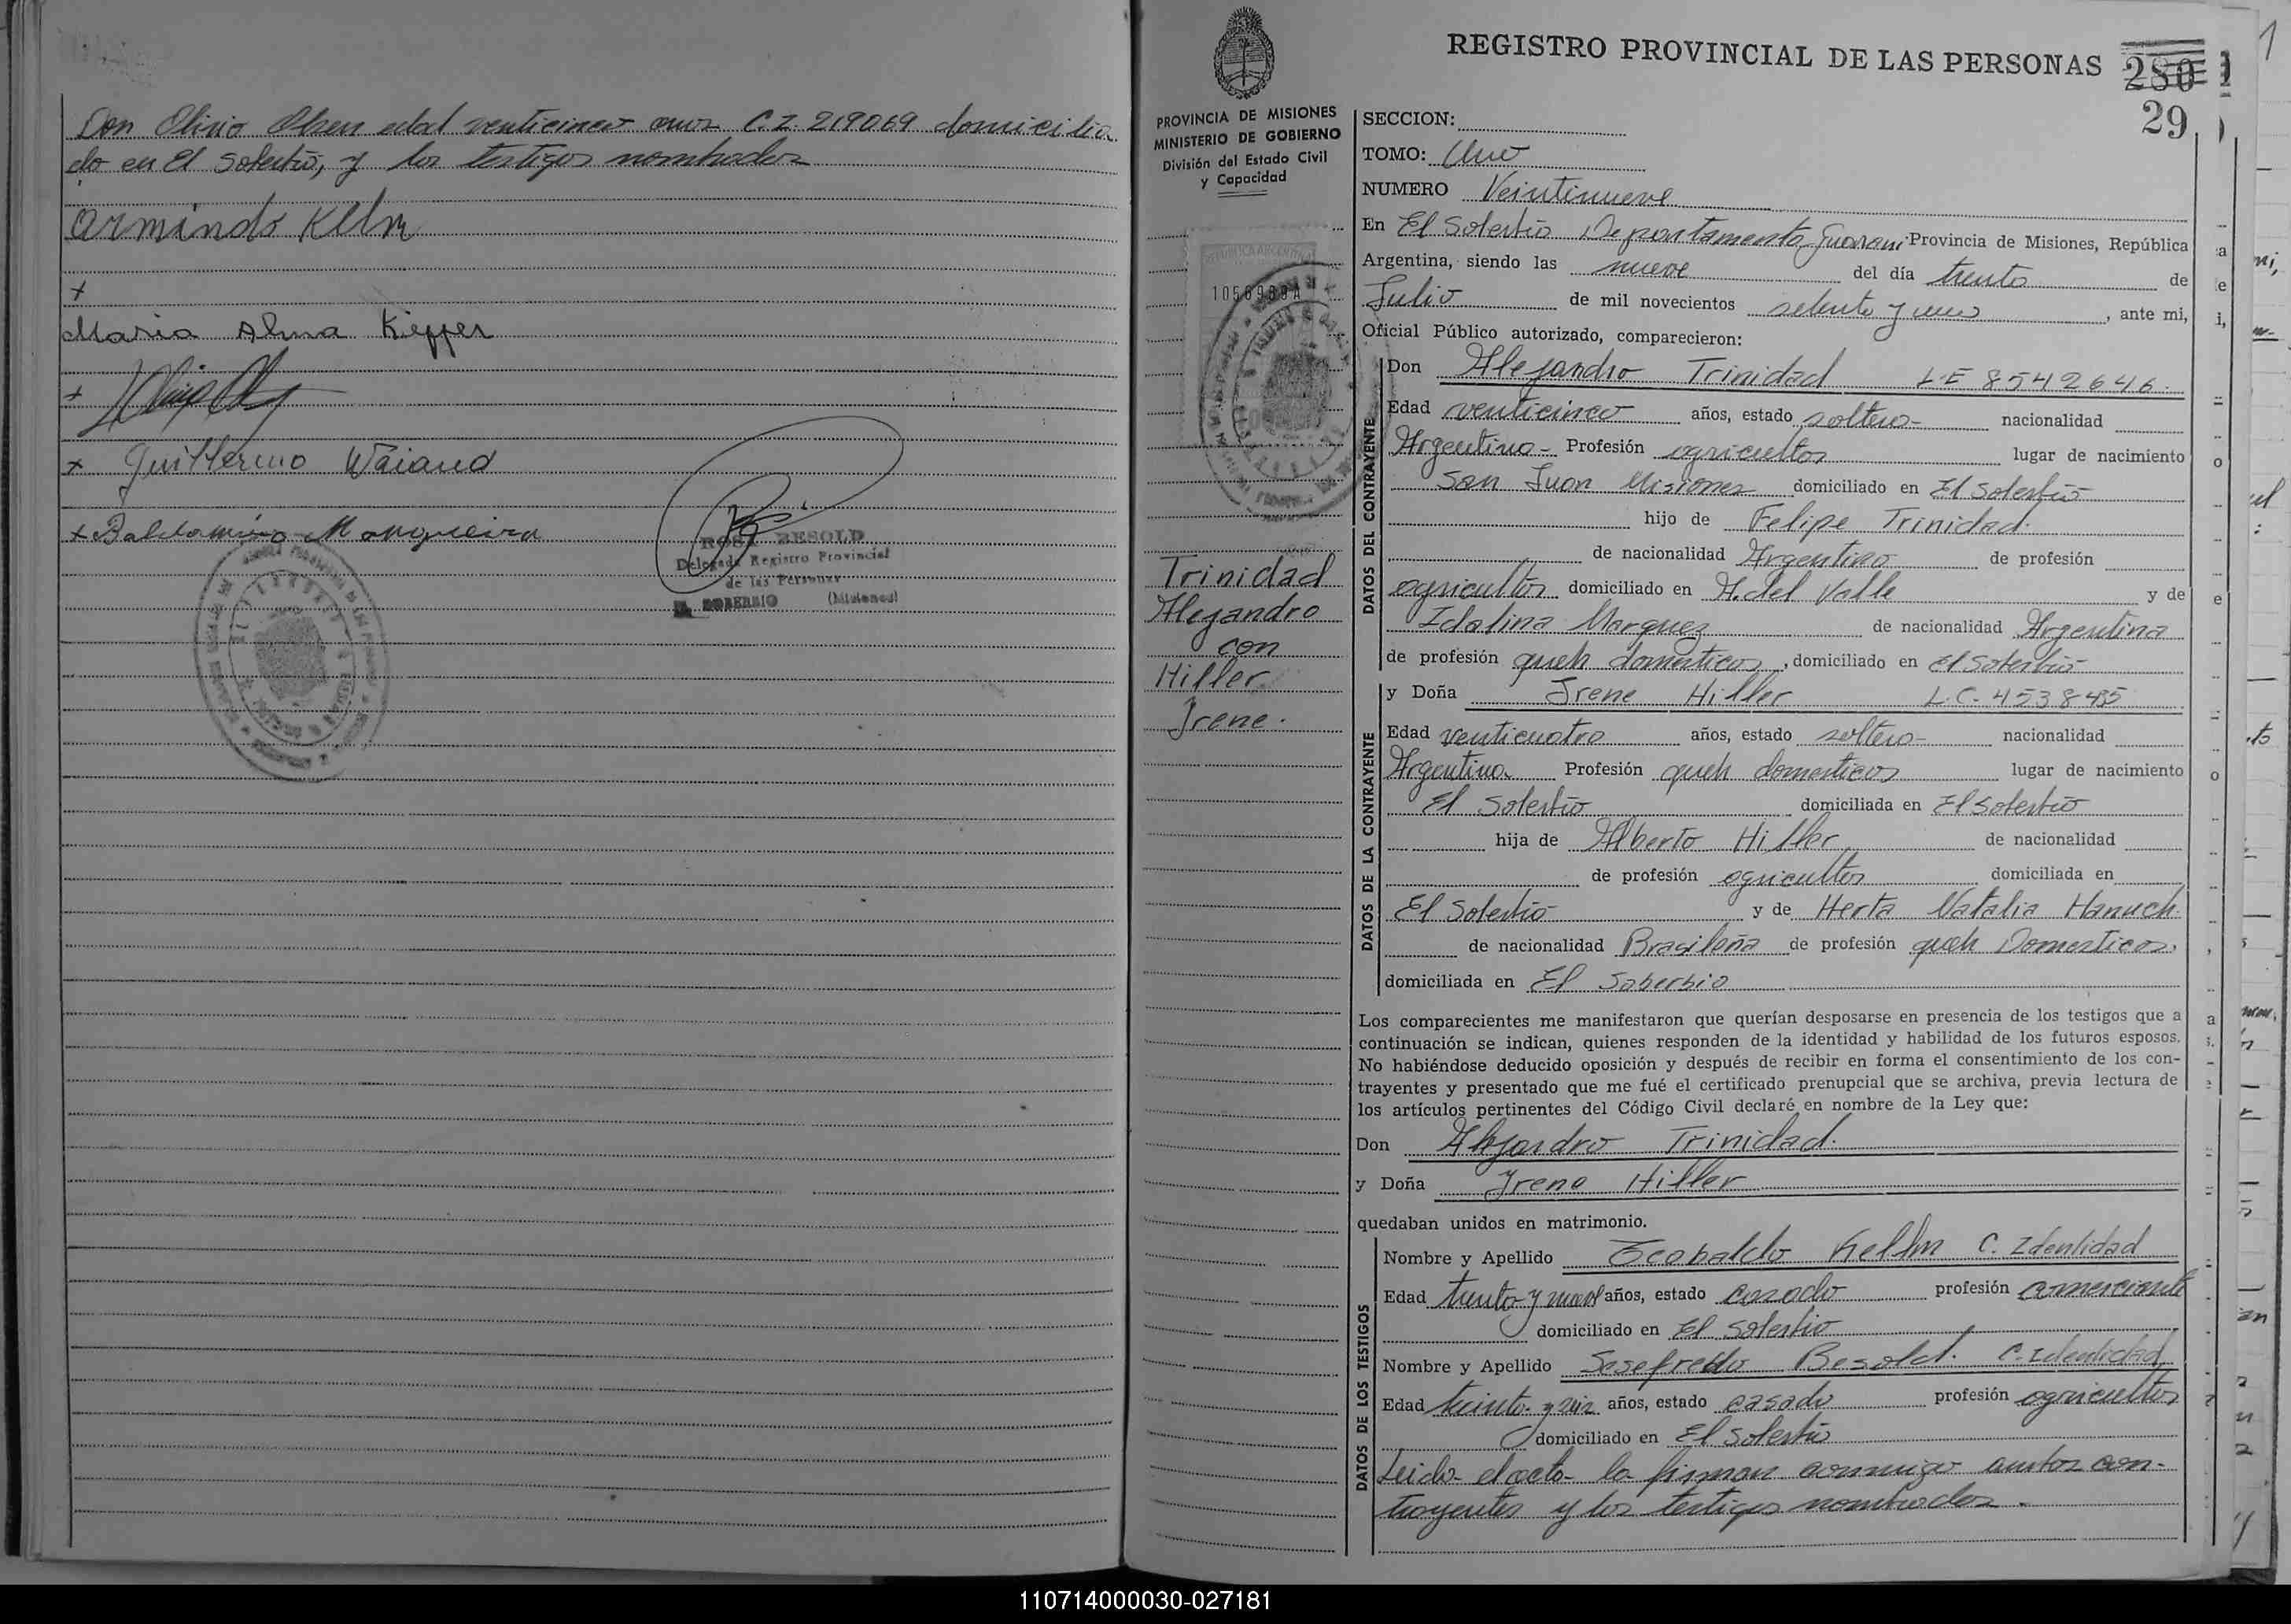 Don Olivio Olsen edad venticinco anos C.I. 219069 domicilia
do en El Soberbio, y los testigos nombrados
Armindo Kelm
+
Maria Alma Kieper
+
+ Guillermo Waiand
+ Baldomiro Mangueira
ROSA BESOLD
Delegada Registro Provincial
de las Personas
EL SOBERBIO (Misiones)
REGISTRO PROVINCIAL DE LAS PERSONAS
280
29
PROVINCIA DE MISIONES
MINISTERIO DE GOBIERNO
División del Estado Civil
y Capacidad
REPUBLICA ARGENTINA
Trinidad
Alejandro
con
Hiller
Irene.
SECCION:
TOMO: Uno
NUMERO Veintinueve
En El Soberbio Departamento Guarani Provincia de Misiones, República
Argentina, siendo las nueve del día trenta de
Julio de mil novecientos setenta y uno, ante mi,
Oficial Público autorizado, comparecieron:
DATOS DEL CONTRAYENTE
Don Alejandro Trinidad L.E 8542646.
Edad venticinco años, estado soltero- nacionalidad
Argentino- Profesión agricultor lugar de nacimiento
San Juan Misiones domiciliado en El Soberbio
hijo de Felipe Trinidad.
de nacionalidad Argentino de profesión
agricultor domiciliado en A. del Valle y de
Idalina Marquez de nacionalidad Argentina
de profesión queh domesticos, domiciliado en El Soberbio
DATOS DE LA CONTRAYENTE
y Doña Irene Hiller L.C. 4538485
Edad venticuatro años, estado soltera- nacionalidad
Argentina Profesión queh domesticos lugar de nacimiento
El Soberbio domiciliada en El Soberbio
hija de Alberto Hiller de nacionalidad
de profesión agricultor domiciliada en
El Soberbio y de Herta Natalia Hanuch.
de nacionalidad Brasileña de profesión queh Domesticos,
domiciliada en El Soberbio
Los comparecientes me manifestaron que querían desposarse en presencia de los testigos que a
continuación se indican, quienes responden de la identidad y habilidad de los futuros esposos.
No habiéndose deducido oposición y después de recibir en forma el consentimiento de los con-
trayentes y presentado que me fué el certificado prenupcial que se archiva, previa lectura de
los artículos pertinentes del Código Civil declaré en nombre de la Ley que:
Don Alejandro Trinidad.
y Doña Irene Hiller
quedaban unidos en matrimonio.
DATOS DE LOS TESTIGOS
Nombre y Apellido Teobaldo Kellm C. Identidad
Edad trenta y nueve años, estado casado profesión comerciante
domiciliado en El Soberbio
Nombre y Apellido Sesefredo Besold. C. Identidad
Edad treinta y seis años, estado casado profesión agricultor
domiciliado en El Soberbio
Leida el acta la firman conmigo ambos con-
trayentes y los testigos nombrados.
110714000030-027181